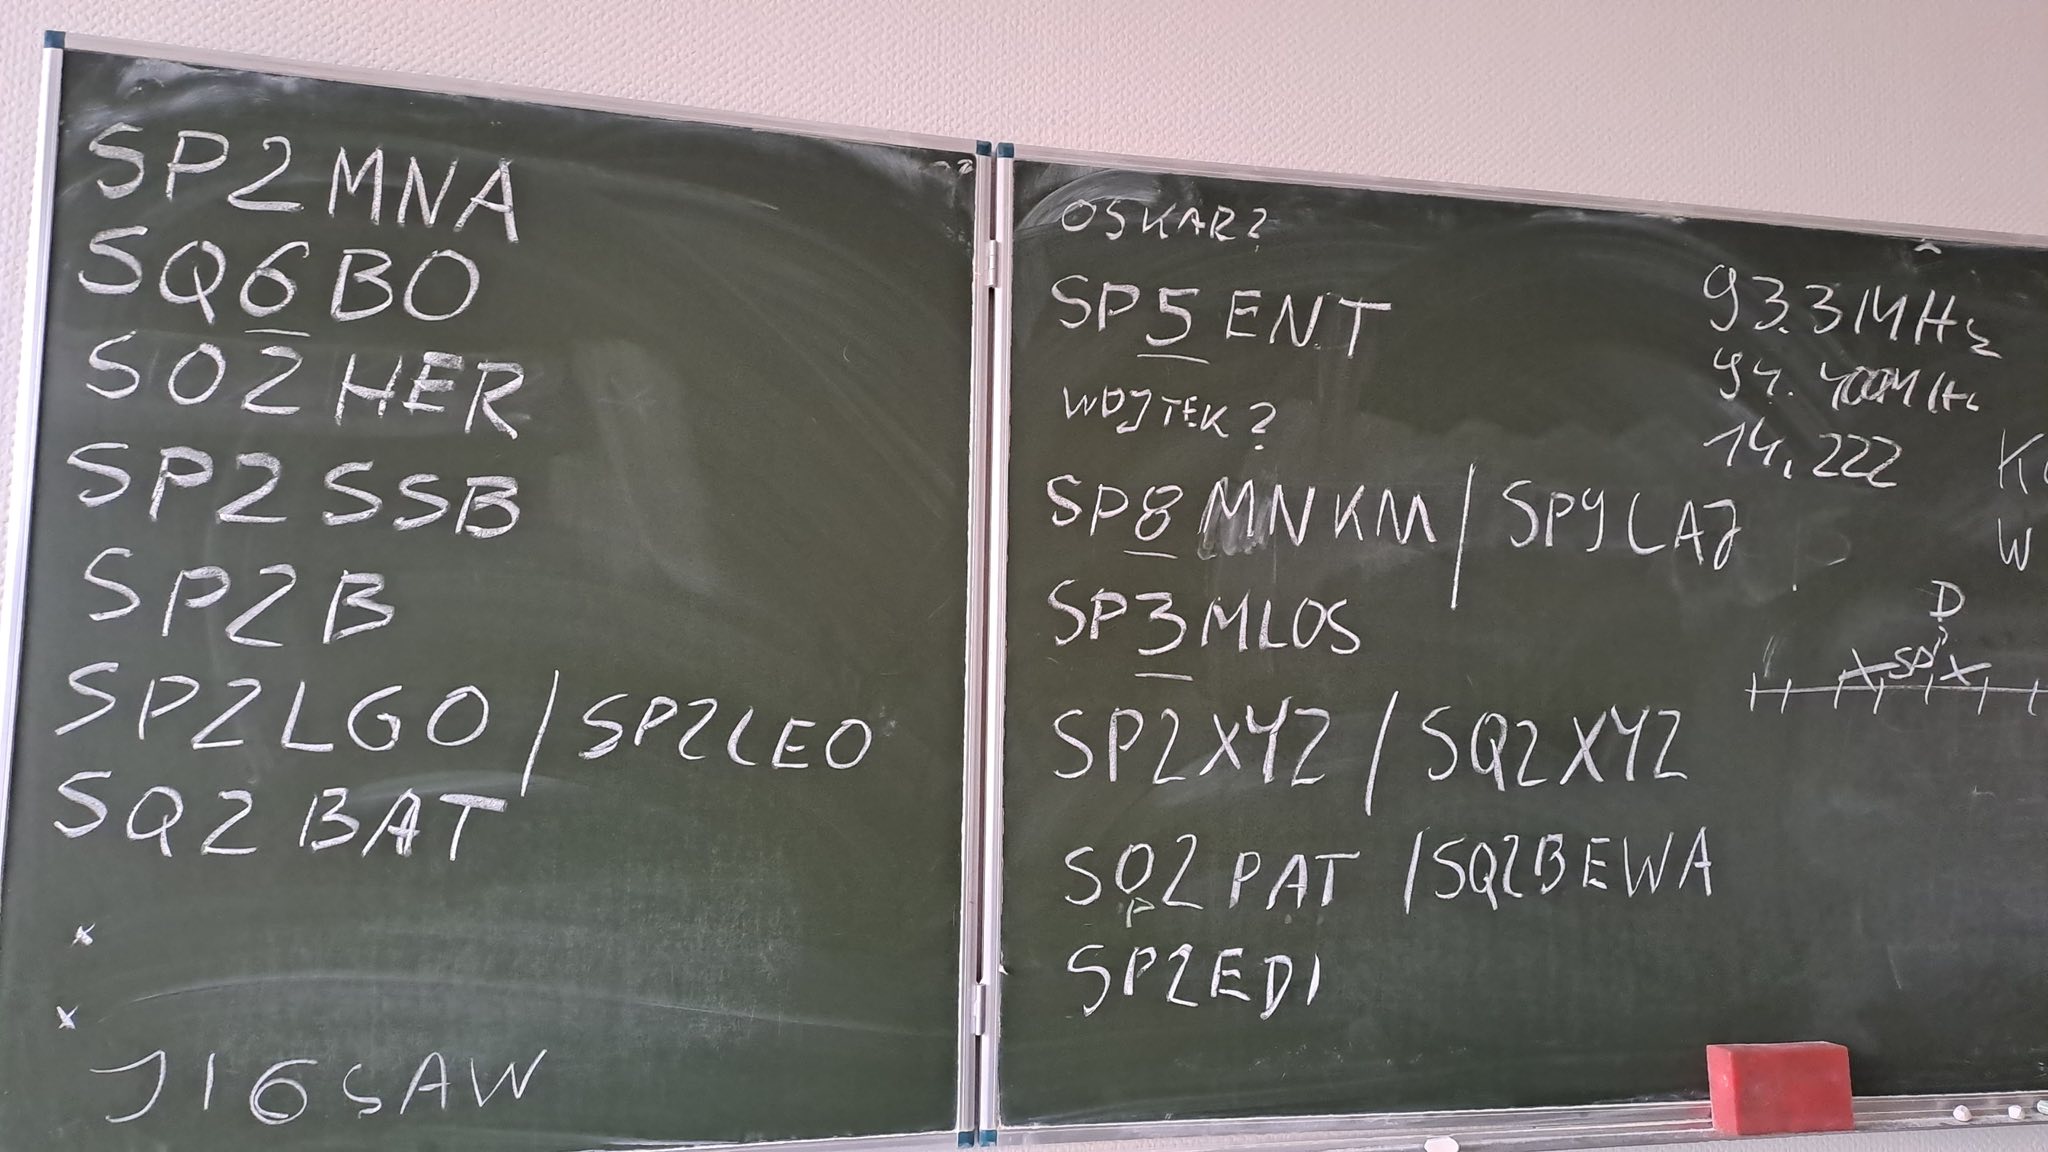 SP2MNA
SQ6BO
SO2HER
SP2SSB
SP2B
SP2LGO / SP2LEO
SQ2BAT
x
x
JIGSAW
OSKAR?
SP5ENT
WOJTEK?
SP8MNKM / SP9LAJ
SP3MLOS
SP2XYZ / SQ2XYZ
SO2PAT / SQ2BEWA
P
SP2EDI
93.3MHz
94.400MHz
14.222
W
D
X SP X